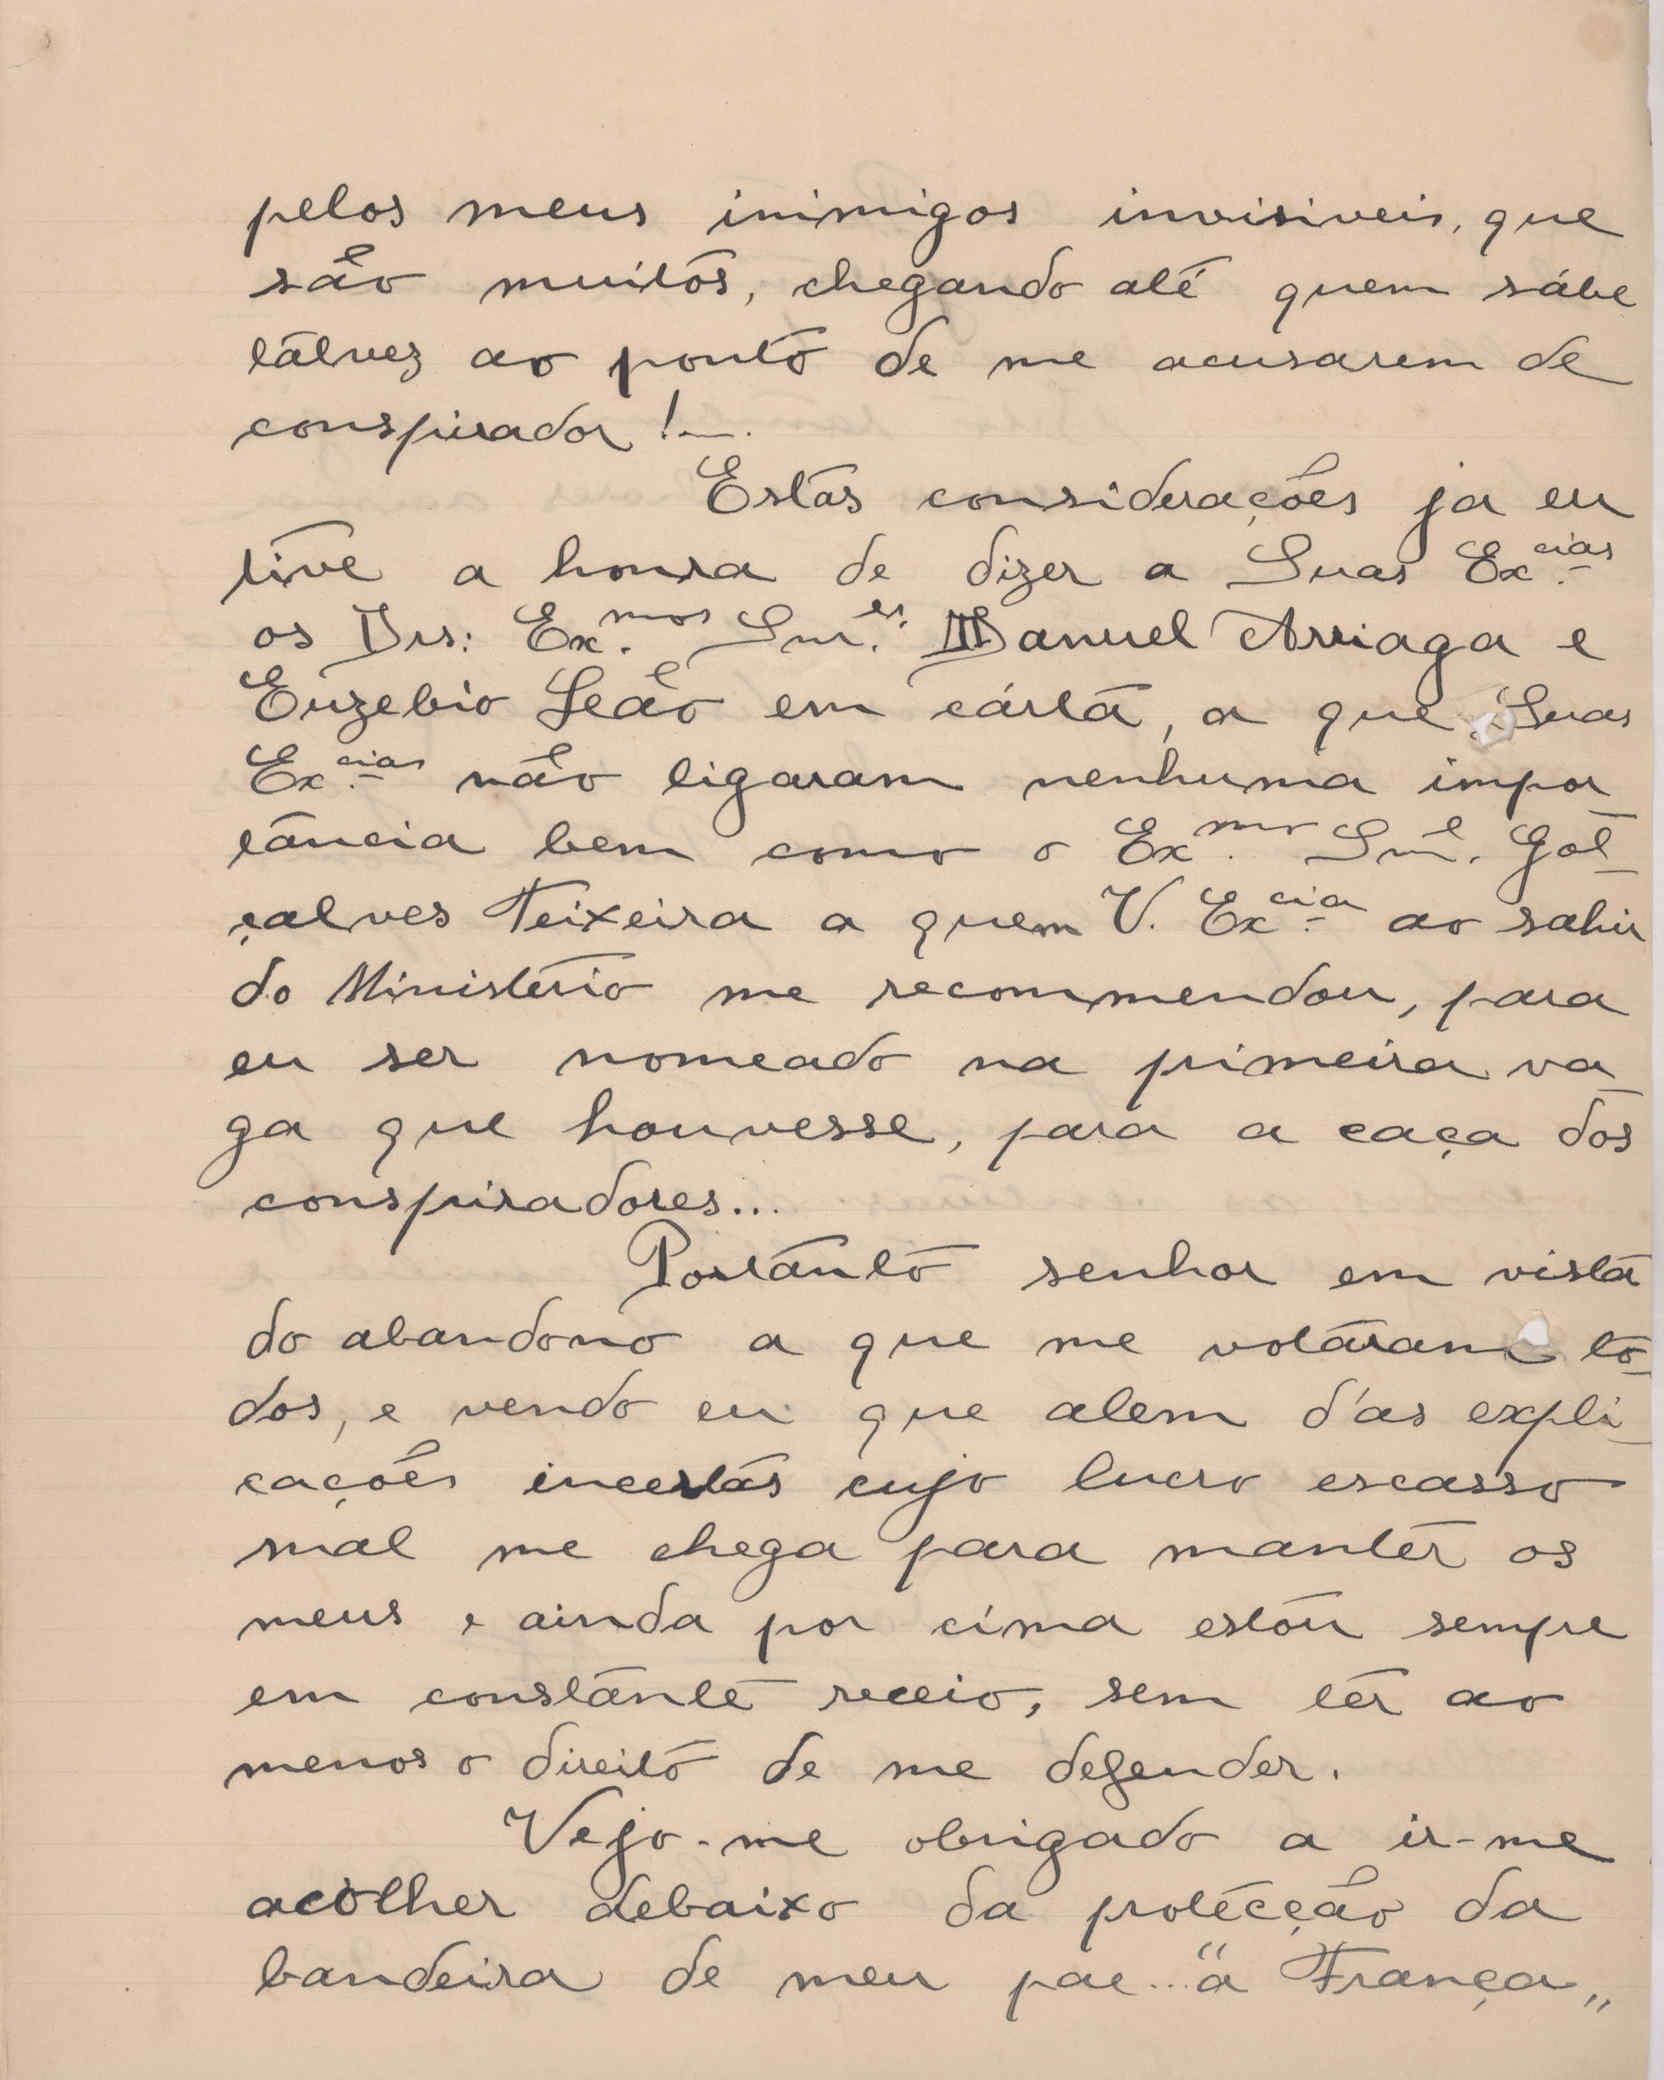 pelos meus inimigos invisiveis, que
são muitos, chegando até quem sábe
talvez ao ponto de me acusarem de
conspirador!...
Estas considerações ja eu
tive a honra de dizer a Suas Ex.cias
os Drs: Ex.mos Snr.es Manuel Arriaga e
Euzebio Leão em cárta, a que Suas
Ex.cias não ligaram nenhuma impor_
tância bem como o Ex.mo Snr. Gol_
çalves Teixeira a quem V. Ex.cia ao sahir
do Ministério me recommendou, para
eu ser nomeado na primeira va_
ga que houvesse, para a caça dos
conspiradores...
Portanto senhor em vista
do abandono a que me votáram to_
dos, e vendo eu que alem d'as expli_
cações incertas cujo lucro escasso
mal me chega para manter os
meus e ainda por cima estou sempre
em constante receio, sem ter ao
menos o direito de me defender.
Vejo-me obrigado a ir-me
acolher debaixo da protécção da
bandeira de meu pae... "a França„